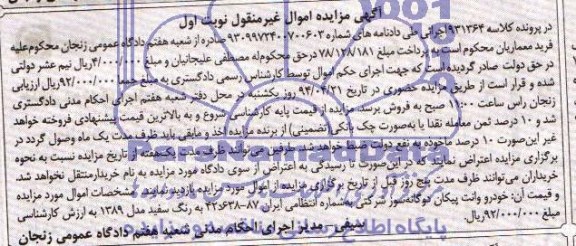 آگهی مزایده اموال غیرمنقول نوبت اول
در پرونده کلاسه ۹۳۱۳۶۴ اجرائی طی دادنامه های شماره ۹۳۰۹۹۷۲۴۰۰۷۰۰۶۰۳ صادره از شعبه هفتم دادگاه عمومی زنجان محکوم‌علیه
فرید معماریان محکوم است به پرداخت مبلغ ۷۸/۱۲۸/۱۸۱ ریال درحق محکوم‌له مصطفی علیجانیان و مبلغ ۴/۰۰۰/۰۰۰ ریال نیم عشر دولتی
در حق دولت صادر گردیده است که جهت اجرای حکم اموال توسط کارشناس رسمی دادگستری به مبلغ جمعا ۹۲/۰۰۰/۰۰۰ ریال ارزیابی
شده و قرار است از طریق مزایده حضوری در تاریخ ۹۴/۰۴/۲۱ روز یکشنبه در محل دفتر شعبه هفتم اجرای احکام مدنی دادگستری
زنجان راس ساعت ۱۱:۰۰ صبح به فروش برسد. مزایده از قیمت پایه کارشناسی شروع و به بالاترین قیمت پیشنهادی فروخته خواهد
شد و ۱۰ درصد ثمن معامله نقدا یا به‌صورت چک بانکی (تضمینی) از برنده مزایده اخذ و مابقی باید ظرف مدت یک ماه وصول گردد در
غیر این‌صورت ۱۰ درصد ماخوذه به نفع دولت ضبط خواهد شد. طرفین می‌توانند ظرف مدت یک‌هفته از تاریخ مزایده نسبت به نحوه
برگزاری مزایده اعتراض نمایند که در این‌صورت تا رسیدگی به اعتراض از سوی دادگاه مورد مزایده به نام خریدار منتقل نخواهد شد.
خریداران می‌توانند ظرف مدت پنج روز قبل از تاریخ برگزاری مزایده از اموال مورد مزایده بازدید نمایند. مشخصات اموال مورد مزایده
و قیمت آن: خودرو وانت پیکان دوگانه‌سوز شرکتی به‌شماره انتظامی ایران ۸۷-۴۲س۶۳۸ به رنگ سفید مدل ۱۳۸۹ به ارزش کارشناسی
مبلغ ۹۲/۰۰۰/۰۰۰ ریال.
مدیر اجرای احکام مدنی شعبه هفتم دادگاه عمومی زنجان
ParsNamadData
پایگاه اطلاع رسانی